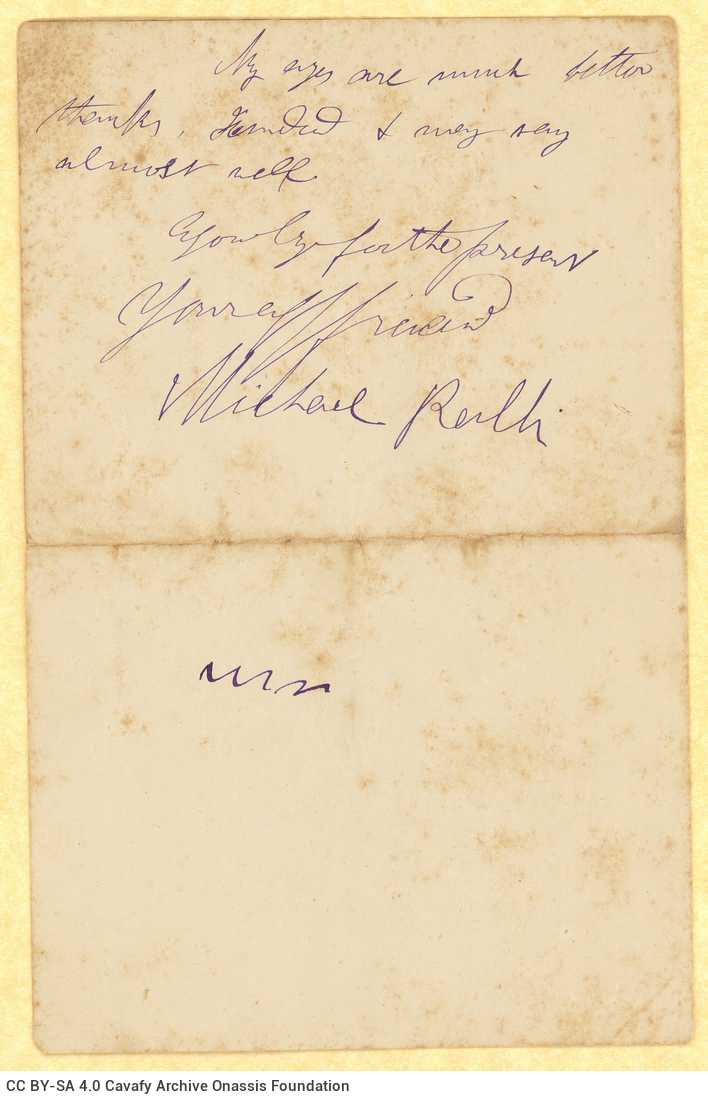 My eyes are much better
thanks, & may say
almost well.
for the present
Your aff friend
Michael Ralli
CC BY-SA 4.0 Cavafy Archive Onassis Foundation